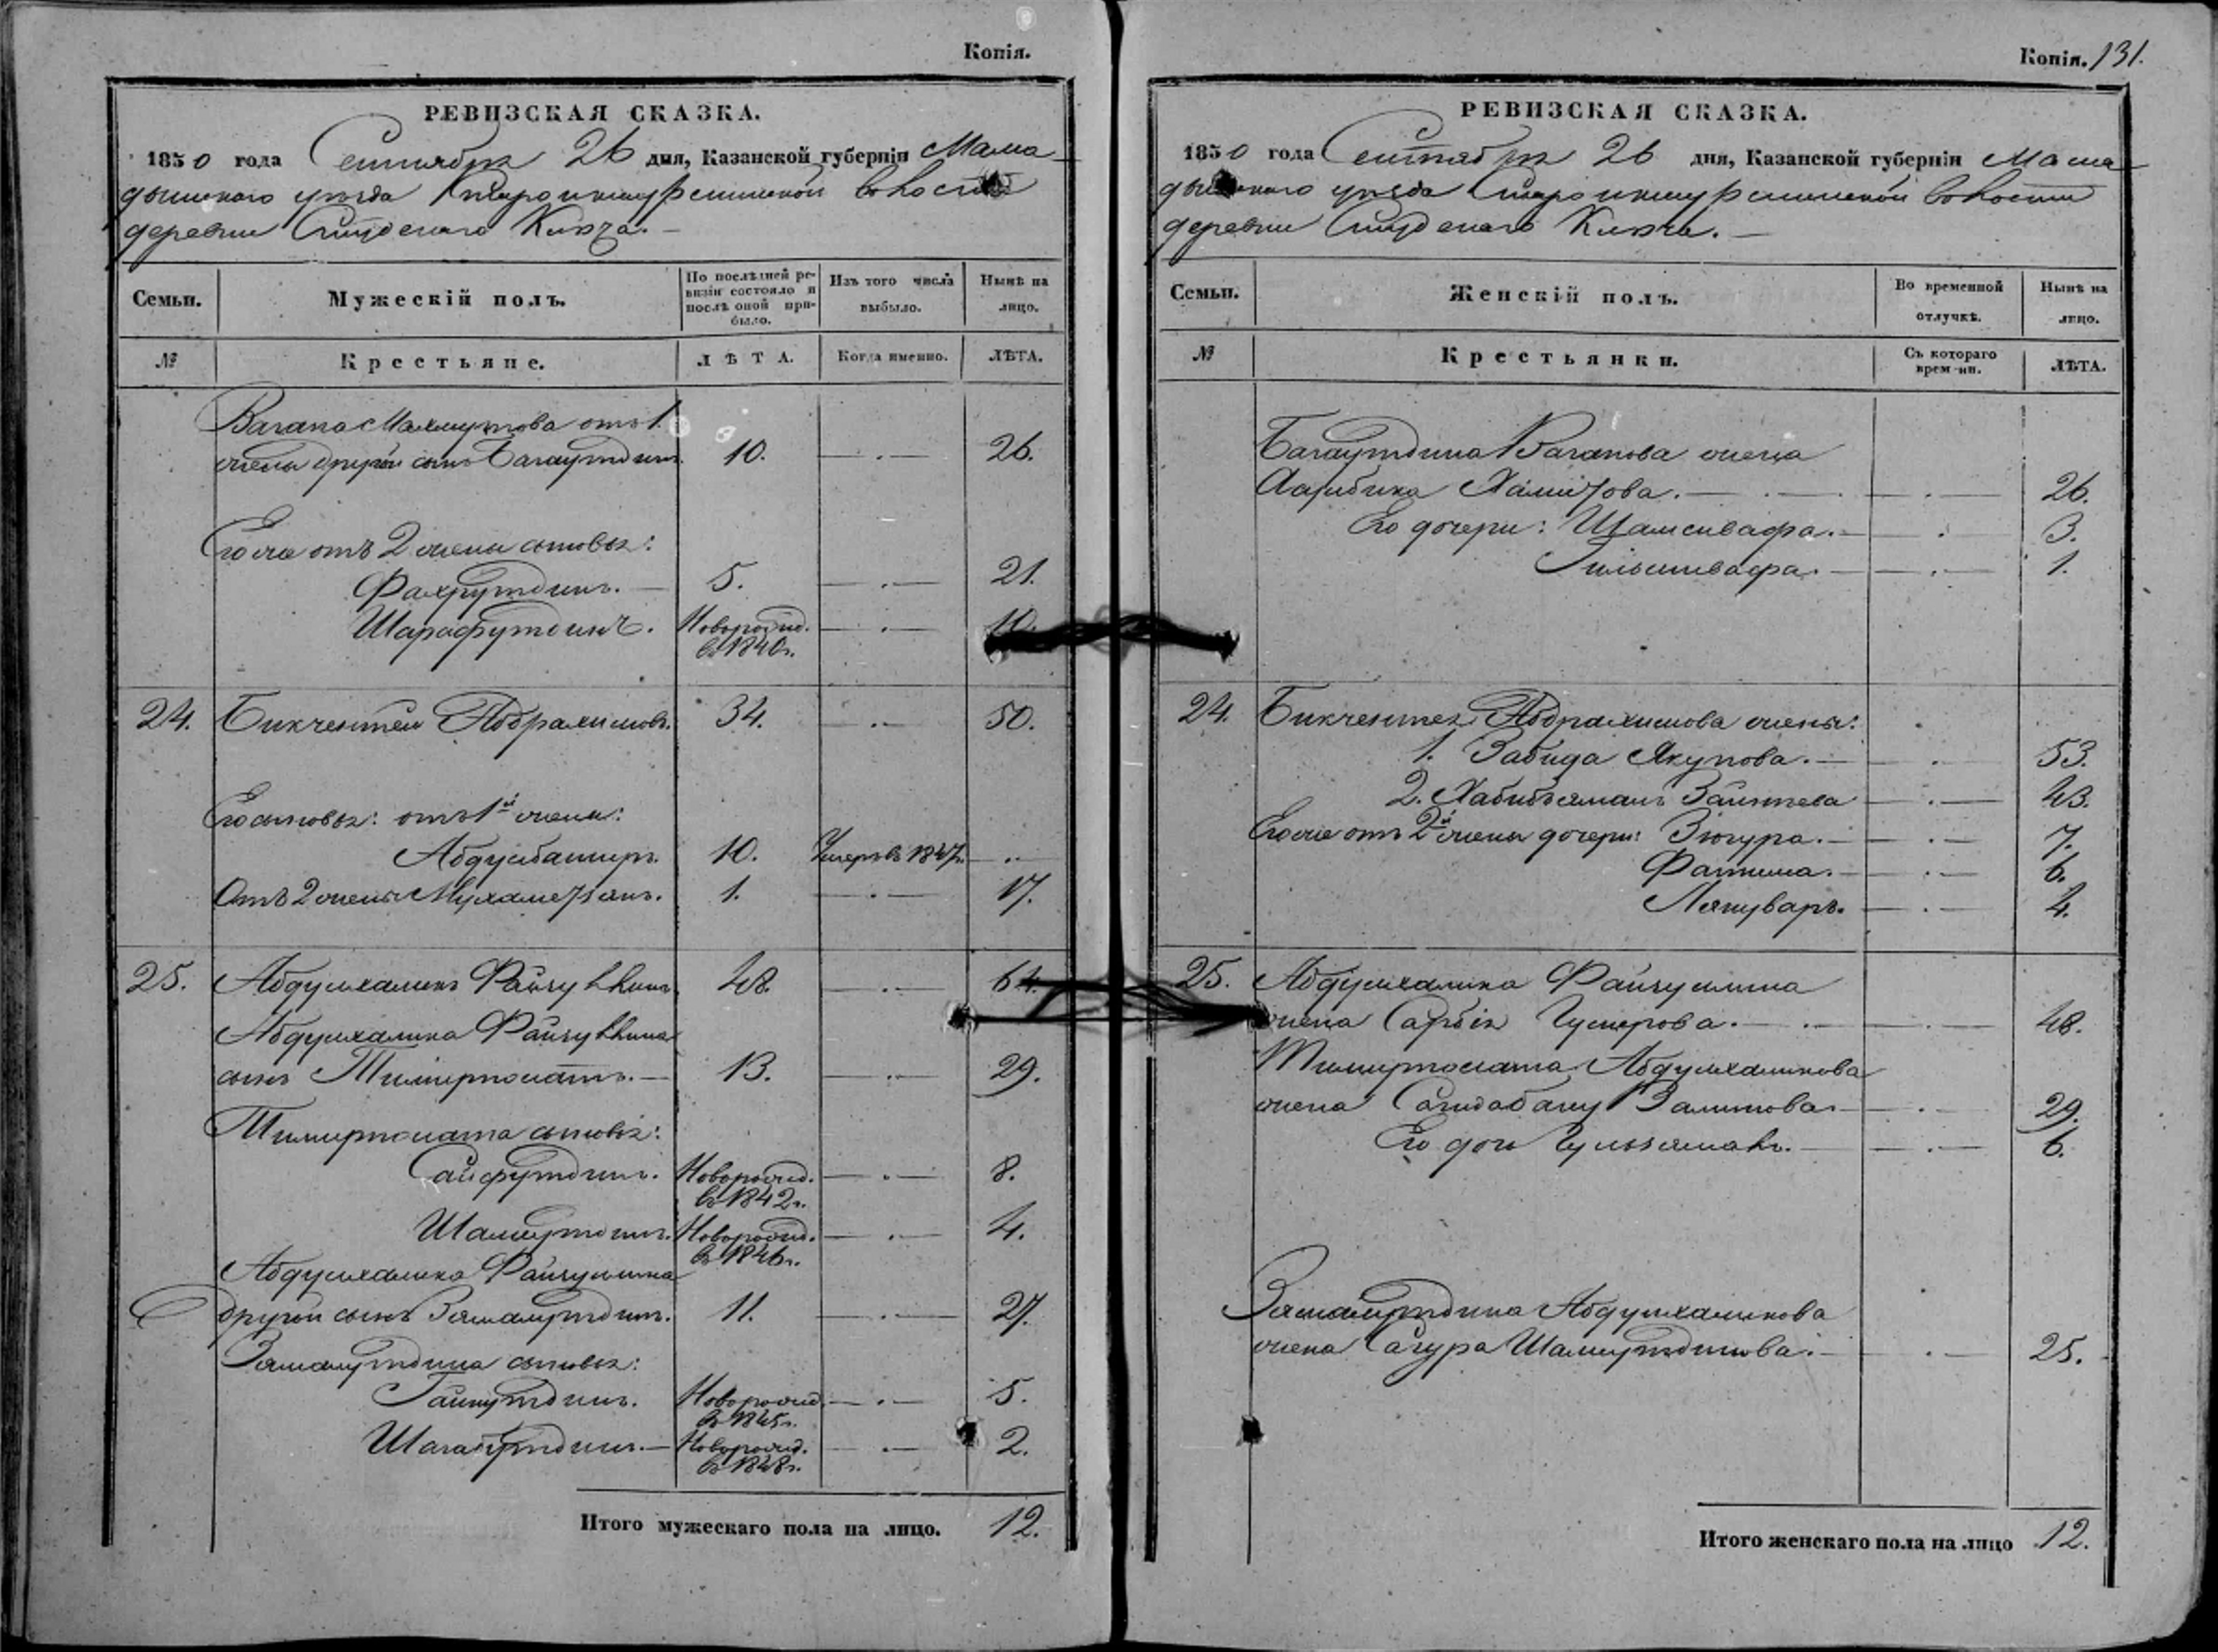 Копія.
РЕВИЗСКАЯ СКАЗКА.
1850 года Сентября 26 дня, Казанской губерніи Мама-
дышскаго уѣзда волости
деревни Ключа.
Семьи.
Мужескій полъ.
По послѣдней ре-
визіи состояло и
послѣ оной при-
было.
Изъ того числа
выбыло.
Нынѣ на
лицо.
№
Крестьяне.
ЛѢТА.
Когда именно.
ЛѢТА.
Вагапа Махмутова отъ 1.
жены другой сынъ Багаутдинъ. 10. — . — 26.
Его же отъ 2 жены сыновья:
Фахрутдинъ. — 5. — . — 21.
Шарафутдинъ. Новорожд. — . — 10.
въ 1840 г.
24. Бикчентей Абдрахимовъ. 34. — . — 50.
Его сыновья: отъ 1й жены:
Абдулбашыръ. 10. Умеръ въ 1847 г. — . .
Отъ 2 жены Мухаметзянъ. 1. — . — 17.
25. Абдулхаликъ Файзуллинъ 48. — . — 64.
Абдулхалика Файзуллина
сынъ Тимирполатъ. — 13. — . — 29.
Тимирполата сыновья:
Сайфутдинъ. Новорожд. — . — 8.
въ 1842 г.
Шамсутдинъ. Новорожд. — . — 4.
въ 1846 г.
Абдулхалика Файзуллина
другой сынъ Зямалутдинъ. 11. — . — 27.
Зямалутдина сыновья:
Гайнутдинъ. Новорожд. — . — 5.
въ 1845 г.
Шагабутдинъ. — Новорожд. — . — 2.
въ 1848 г.
Итого мужескаго пола на лицо. 12.
Копія. 131.
РЕВИЗСКАЯ СКАЗКА.
1850 года Сентября 26 дня, Казанской губерніи Мама-
дышскаго уѣзда волости
деревни Ключа. —
Семьи.
Женскій полъ.
Во временной
отлучкѣ.
Нынѣ на
лицо.
№
Крестьянки.
Съ котораго
времени.
ЛѢТА.
Багаутдина Вагапова жена
Хамитова. — . — 26.
Его дочери: Шамсивафа. — . 3.
Гильмивафа. — . — 1.
24. Бикчентея Абдрахимова жены:
1. Забида Якупова. — . — 53.
2. Хабибзямалъ Заитева — . — 43.
Его же отъ 2й жены дочери: Зюгура. — . — 7.
Фатима. — . — 6.
Ляnуваръ. — . — 4.
25. Абдулхалика Файзуллина
жена Сарбія Гумерова. — . — 48.
Тимирполата Абдулхаликова
жена Сагидабану Залитова. — . — 29.
Его дочь Гульзямалъ. — . — 6.
Зямалутдина Абдулхаликова
жена Сагура Шамсутдинова. — . — 25.
Итого женскаго пола на лицо 12.